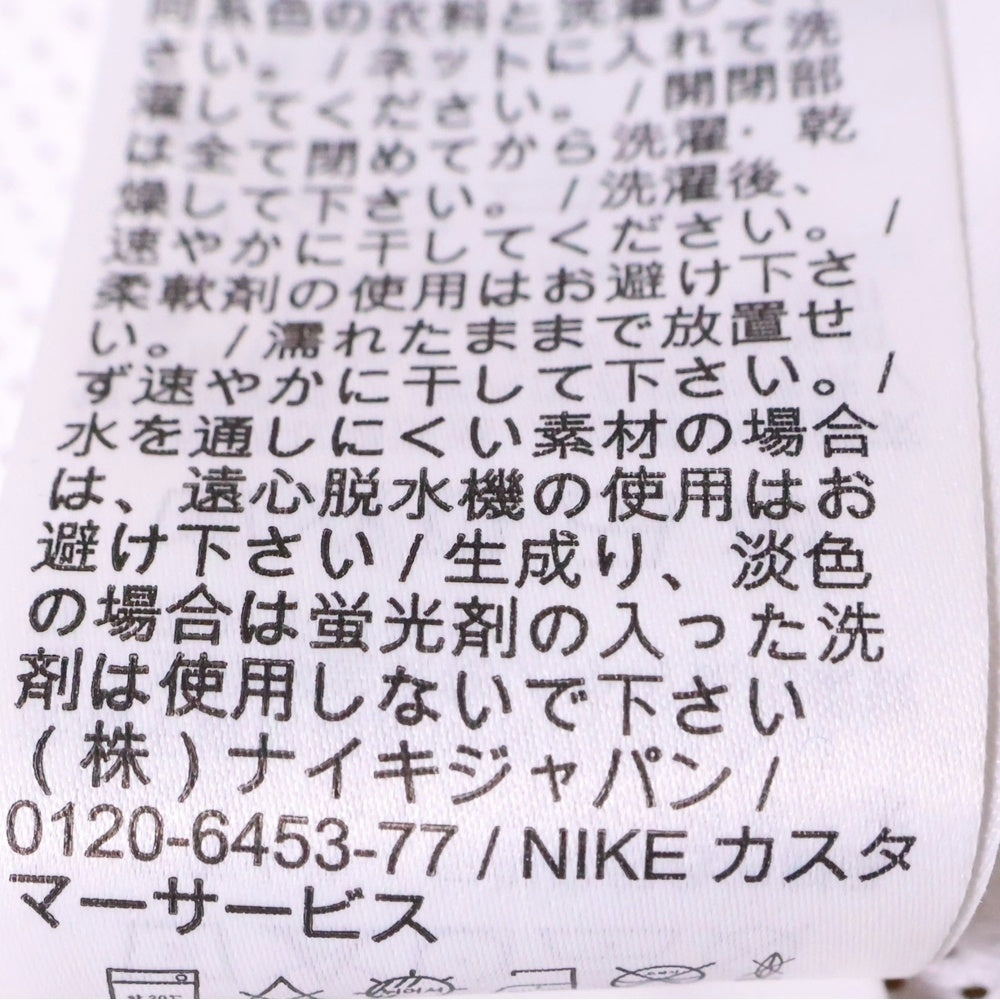 同系色の衣料と洗濯して
さい。/ ネットに入れて洗
濯してください。/ 開閉部
は全て閉めてから洗濯・乾
燥して下さい。/ 洗濯後、
速やかに干してください。/
柔軟剤の使用はお避け下さ
い。/ 濡れたままで放置せ
ず速やかに干して下さい。/
水を通しにくい素材の場合
は、遠心脱水機の使用はお
避け下さい / 生成り、淡色
の場合は蛍光剤の入った洗
剤は使用しないで下さい
(株)ナイキジャパン /
0120-6453-77 / NIKE カスタ
マーサービス